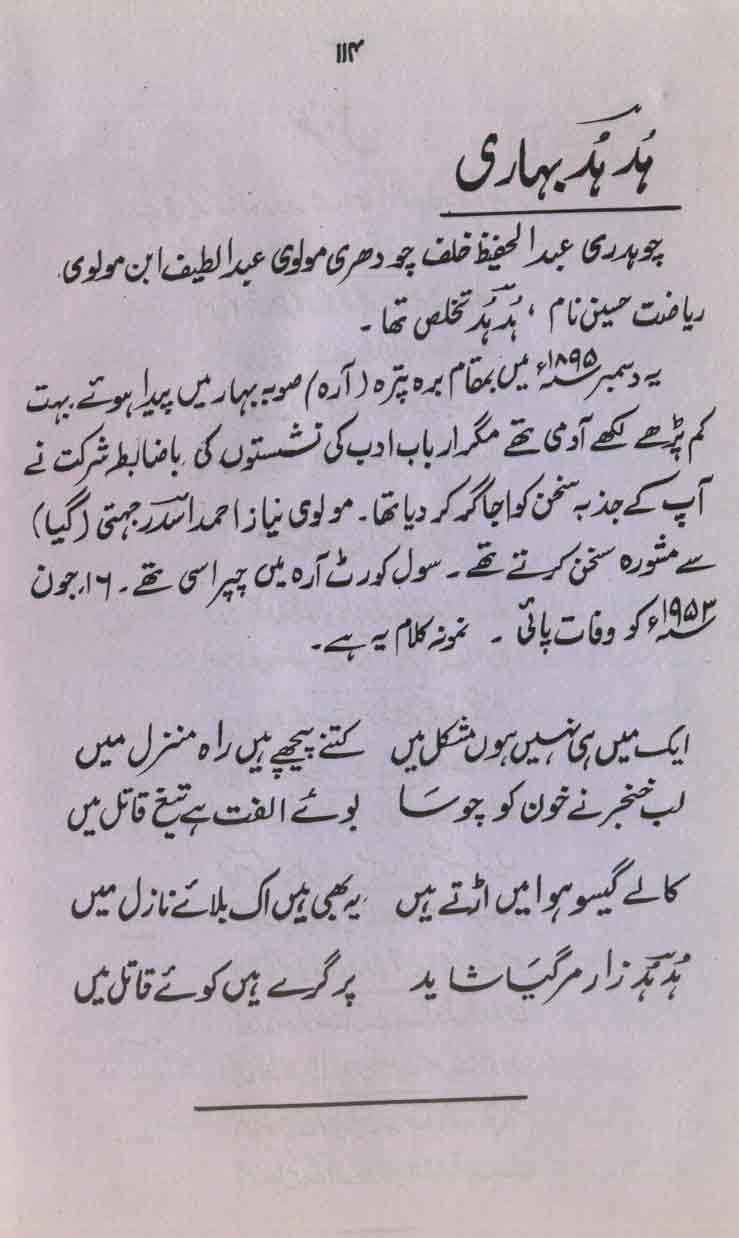 ۱۱۴
ہُدہُد بہاری
چوہدری عبدالحفیظ خلف چودھری مولوی عبدالطیف ابن مولوی
ریاضت حسین نام، ہُدہُد تخلص تھا۔
یہ دسمبر ۱۸۹۵ء میں بمقام برہ پترہ (آرہ) صوبہ بہار میں پیدا ہوئے بہت
کم پڑھے لکھے آدمی تھے مگر ارباب ادب کی نشستوں کی باضابطہ شرکت نے
آپ کے جذبہ سخن کو اجاگر کر دیا تھا۔ مولوی نیاز احمد اسدؔ رجہتی (گیا)
سے مشورہ سخن کرتے تھے۔ سول کورٹ آرہ میں چپراسی تھے۔ ۱۶؍جون
۱۹۵۳ء کو وفات پائی۔ نمونہ کلام یہ ہے۔
ایک میں ہی نہیں ہوں مشکل میں کتنے پیچھے ہیں راہ منزل میں
لب خنجر نے خون کو چوسا بوئے الفت ہے تیغ قاتل میں
کالے گیسو ہوا میں اڑتے ہیں یہ بھی ہیں اک بلائے نازل میں
ہُدہُدؔ زار مر گیا شاید پر گرے ہیں کوئے قاتل میں